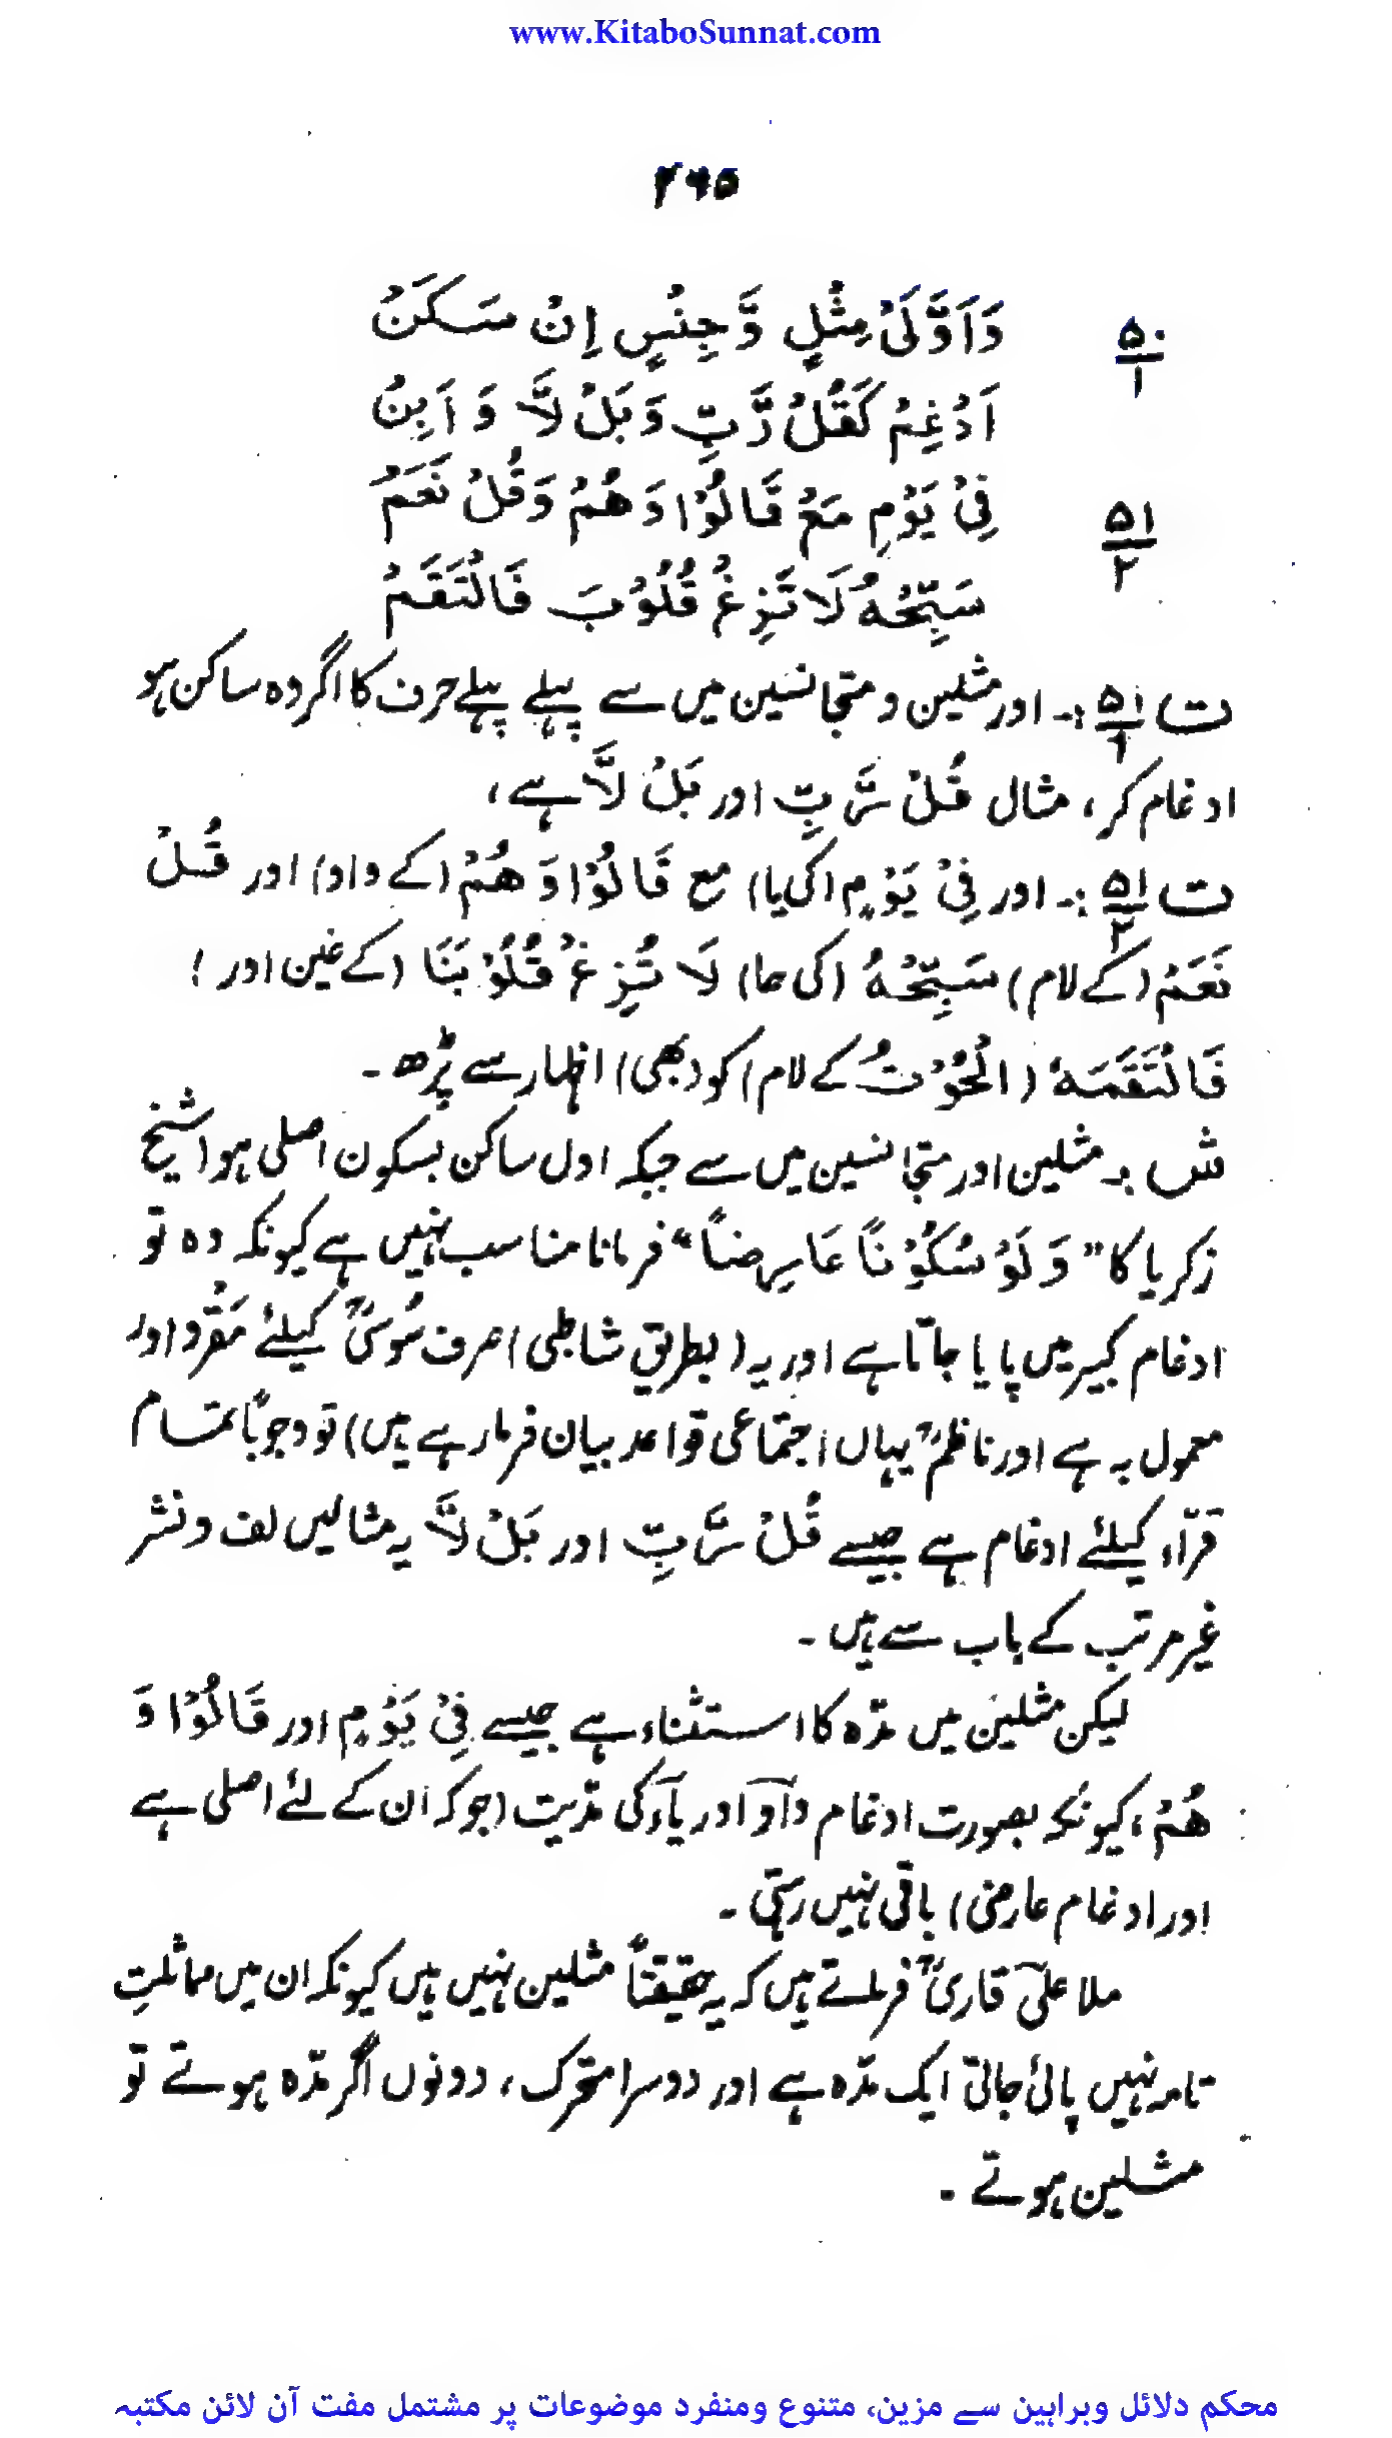 www.KitaboSunnat.com
۲۶۵
وَاَوَّلَىْ مِثْلٍ وَّجِنْسٍ اِنْ سَكَنْ ۵۰/۱
اَدْغِمْ كَقُلْ رَّبِّ وَبَلْ لَّا وَ اَبِنْ
فِىْ يَوْمِ مَعْ قَالُوْا وَهُمْ وَقُلْ نَعَمْ ۵۱/۲
سَبِّحْهُ لَا تَزِغْ قُلُوْبَ فَالْتَقَمْ
ت ۵۱/۱ :۔ اور مثلین و متجانسین میں سے پہلے پہلے حرف کا اگر وہ ساکن ہو
ادغام کر، مثال قُلْ رَّبِّ اور بَلْ لَّا ہے،
ت ۵۱/۲ :۔ اور فِىْ يَوْمٍ (کی یا) مع قَالُوْا وَ هُمْ (کے واو) اور قُلْ
نَعَمْ (کے لام) سَبِّحْهُ (کی حا) لَا تُزِغْ قُلُوْبَنَا (کے غین اور)
فَالْتَقَمَهُ (الْحُوْتُ کے لام) کو (بھی) اظہار سے پڑھ ۔
ش :۔ مثلین اور متجانسین میں سے جبکہ اول ساکن بسکون اصلی ہو (شیخ
زکریا کا ”وَلَوْ سُكُوْنًا عَارِضًا“ فرمانا مناسب نہیں ہے کیونکہ وہ تو
ادغام کبیر میں پایا جاتا ہے اور یہ (بطریق شاطبی) صرف سُوسیؒ کیلئے مَقْرُو اور
معمول بہ ہے اور ناظمؒ یہاں اجتماعی قواعد بیان فرما رہے ہیں) تو وجوبًا تمام
قرّاء کیلئے ادغام ہے جیسے قُلْ رَّبِّ اور بَلْ لَّا یہ مثالیں لف و نشر
غیر مرتب کے باب سے ہیں ۔
لیکن مثلین میں مدّہ کا استثناء ہے جیسے فِىْ يَوْمٍ اور قَالُوْا وَ
هُمْ، کیونکہ بصورت ادغام واؤ اور یاء کی مدّیت (جو کہ ان کے لئے اصلی ہے
اور ادغام عارضی) باقی نہیں رہتی ۔
ملا علی قاریؒ فرماتے ہیں کہ یہ حقیقتًا مثلین نہیں ہیں کیونکہ ان میں مماثلتِ
تامہ نہیں پائی جاتی ایک مدّہ ہے اور دوسرا متحرک، دونوں اگر مدّہ ہوتے تو
مثلین ہوتے ۔
محکم دلائل وبراہین سے مزین، متنوع ومنفرد موضوعات پر مشتمل مفت آن لائن مکتبہ